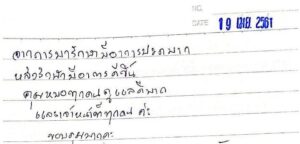 NO.
DATE 19 เม.ย. 2561
จากการมารักษามีอาการปวดมาก
หลังรักษามีอาการดีขึ้น
คุณหมอทุกคนดูแลดีมาก
และเจ้าหน้าที่ทุกคน ค่ะ
ขอบคุณมากคะ